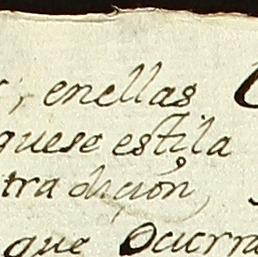 , enellas
quese estila
tra dicion,
que Ocurra